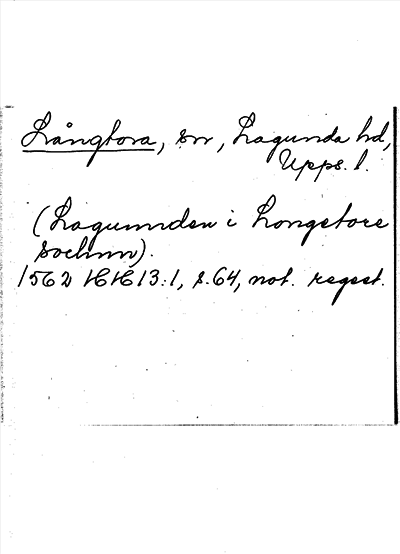 Långtora, sn, Lagunda hd,
Upps. l.
(Lagunnden i Longetore
sochnn).
1562 HH 13:1, s. 64, not. regest.